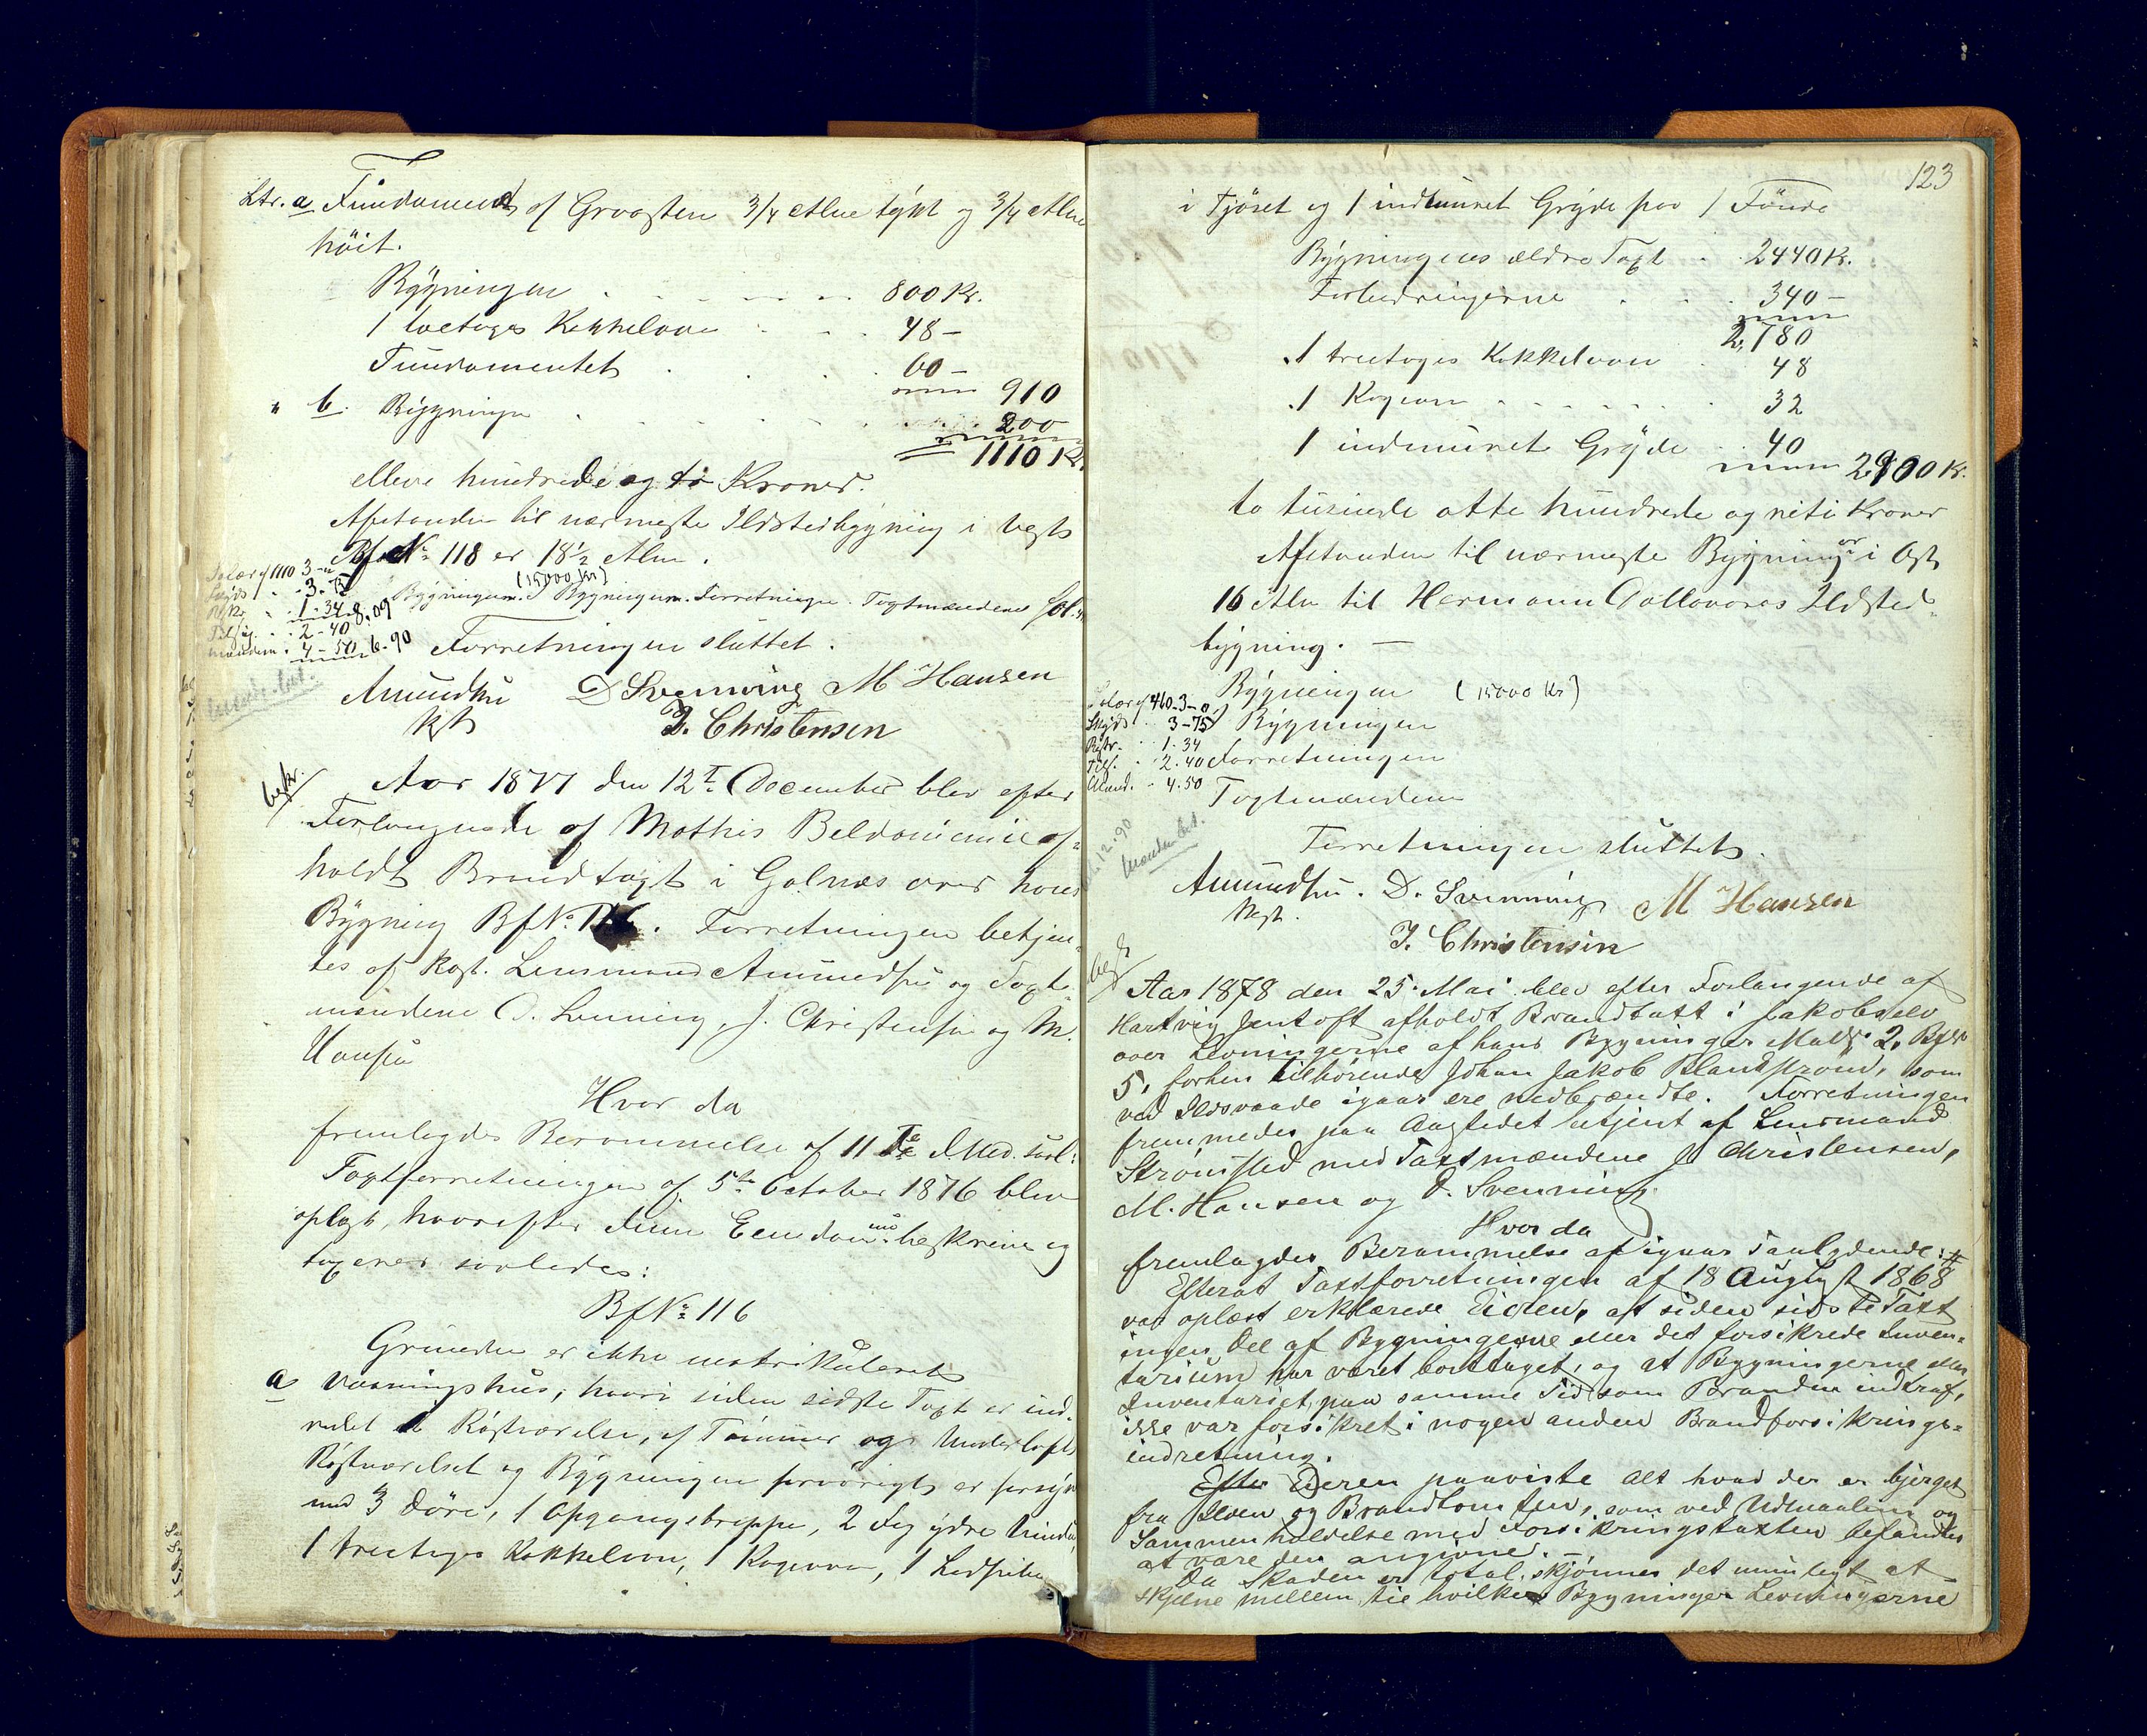 Ltr. a Fundament af Graasten 3/4 Alne tykt og 3/4 Alne
höit.
Bygningen 800 Kr.
1 toetages Kakkelovn 48 –
Fundamentet 60 –
910
" b. Bygningen 200
1110 Kr.
elleve hundrede og ti Kroner.
Afstanden til nærmeste Ildstedbygning i Vest
Bf No 118 er 18 1/2 Alen.
Salær af 1110 3-
Skyds 3.75
1-34 8.09
2-40
4-50 6-90
(15000 Kr)
Bygningen. I Bygningen. Forretningen. Taxtmændene
Forretningen sluttet.
Amundsen D Svenning M Hansen
kst J. Christensen
bekr.
Aar 1877 den 12te December blev efter
Forlangende af Mathis Beldoniemie af-
holdt Brandtaxt i Galnæs over hans
Bygning Bf No 116. Forretningen betjen-
tes af kost. Lensmand Amundsen og Taxt-
mændene D. Svenning, J. Christensen og M.
Hansen
Hvor da
fremlagdes Berammelse af 11 te d. Md. saal:
Taxtforretningen af 5te October 1876 blev
oplæst, hvorefter denne Eiendom nu beskrives og
taxeres saaledes:
Bf No 116
Grunden er ikke matrikuleret
a Vaaningshus, hvori siden sidste Taxt er ind-
redet 1 Röstværelse, af Tömmer og Underloft
Röstværelset og Bygningen forövrigt er forsynet
med 3 Döre, 1 Opgangstrappe, 2 Fag ydre Vinduer,
1 treetages Kakkelovn, 1 Kogeovn,
123
i Fjöset og 1 indmuret Gryde paa 1 Tönde
Bygningens ældre Taxt 2440 Kr.
Forbedringerne 340 –
2,780
1 treetages Kakkelovn 48
1 Kogeovn 32
1 indmuret Gryde 40
2900 Kr.
to tusinde otte hundrede og niti Kroner
Afstanden til nærmeste Bygning er i Öst
16 Alen til Hermann Pallavaras Ildsted-
bygning. –
Bygningen (15000 Kr)
Salær af 460-3-0
Skyds 3-75 Bygningen
1.34
2.40 Forretningen
4.50 Taxtmændene
12.90
Forretningen sluttet.
Amundsen. D. Svenning M Hansen
kst. J. Christensen
bekr
Aar 1878 den 25. Mai blev efter Forlangende af
Hartvig Jentoft afholdt Brandtaxt i Jakobselv
over Levningerne af hans Bygninger Mat No 2. Bf No
5, forhen tilhörende Johan Jakob Blankstrøm, som
ved Ildsvaade igaar ere nedbrændte. Forretningen
fremmedes paa Aastedet betjent af Lensmand
Strømsted med Taxtmændene J Christensen,
M. Hansen og D. Svenning.
Hvor da
fremlagdes Berammelse af igaar saalydende: #
Efterat Taxtforretningen af 18 August 1868
var oplæst erklærede Eieren, at siden sidste Taxt
ingen Del af Bygningerne eller det forsikrede Inven-
tarium har været borttaget, og at Bygningerne eller
Inventariet, paa samme Tid som Branden indtraf,
ikke var forsikret i nogen anden Brandforsikrings-
indretning.
Efter Eieren paaviste alt hvad der er bjerget
fra Ilden og Brandtomten, som ved Udmaaling og
Sammenholdelse med Forsikringstaxten befandtes
at være den angivne.
Da Skaden er total, skjönnes det umuligt at
skjelne mellem, til hvilke Bygninger Levningerne